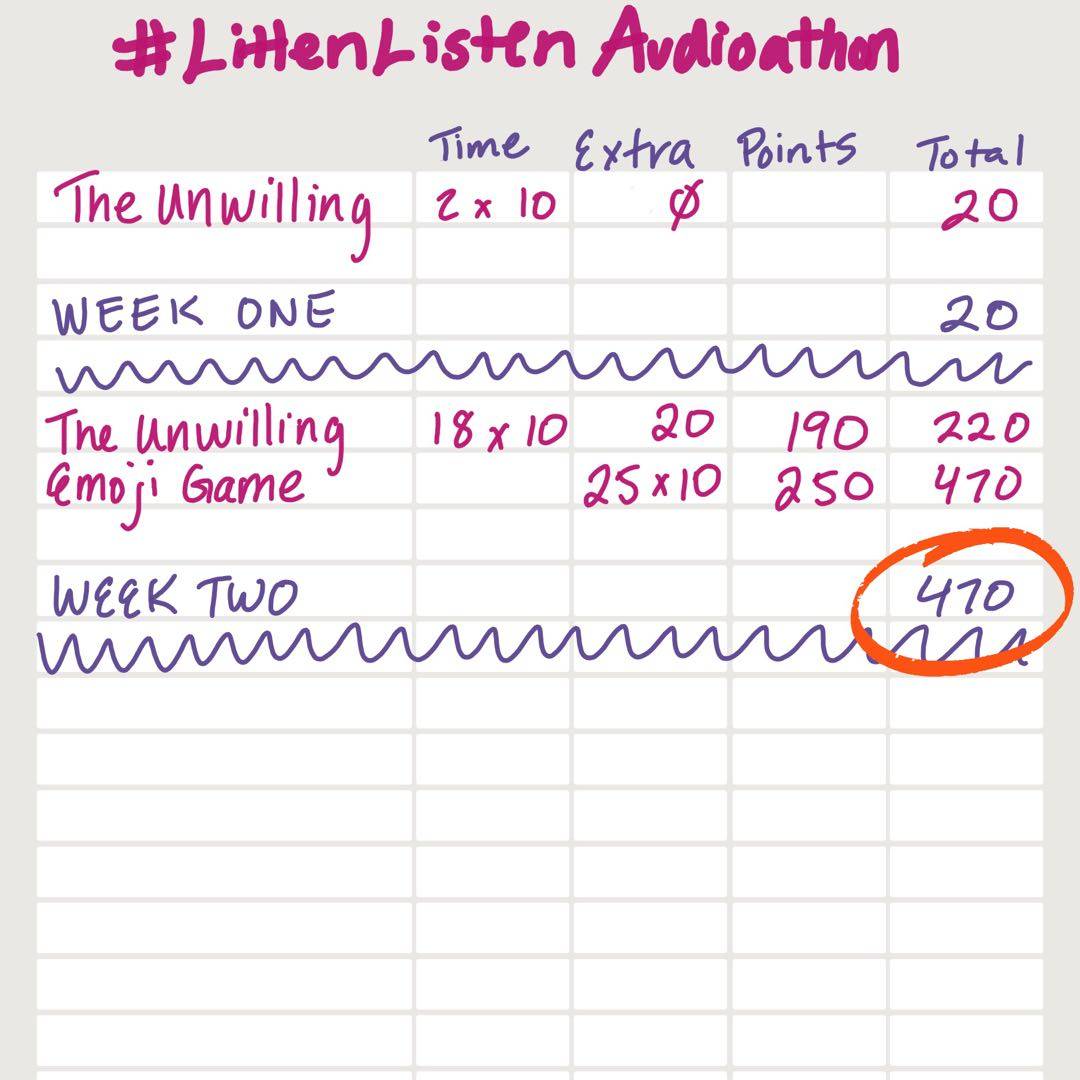 #LittenListen Audioathon
Time Extra Points Total
The Unwilling 2 x 10 Ø 20
WEEK ONE 20
The Unwilling 18 x 10 20 190 220
Emoji Game 25 x 10 250 470
WEEK TWO 470